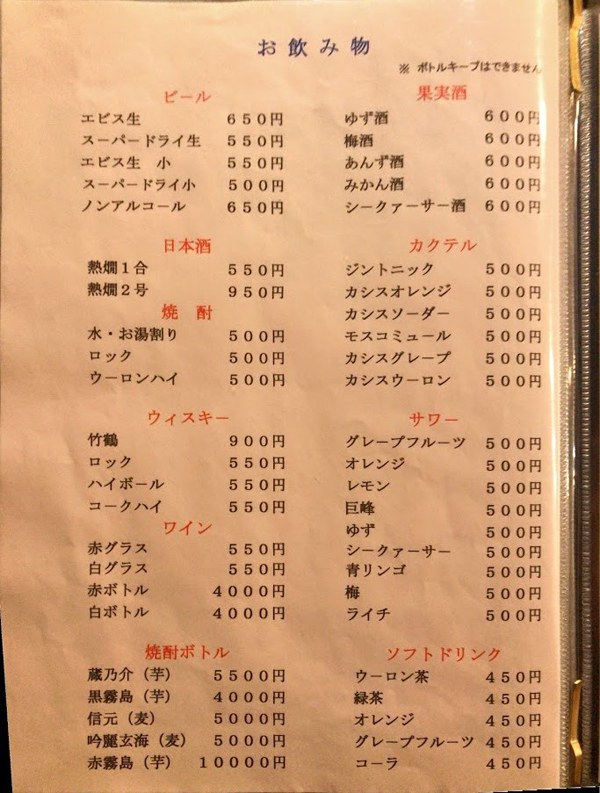 お飲み物
※ ボトルキープはできません
ビール
エビス生 650円
スーパードライ生 550円
エビス生 小 550円
スーパードライ小 500円
ノンアルコール 650円
日本酒
熱燗1合 550円
熱燗2号 950円
焼 酎
水・お湯割り 500円
ロック 500円
ウーロンハイ 500円
ウィスキー
竹鶴 900円
ロック 550円
ハイボール 550円
コークハイ 550円
ワイン
赤グラス 550円
白グラス 550円
赤ボトル 4000円
白ボトル 4000円
焼酎ボトル
蔵乃介(芋) 5500円
黒霧島(芋) 4000円
信元(麦) 5000円
吟麗玄海(麦) 5000円
赤霧島(芋) 10000円
果実酒
ゆず酒 600円
梅酒 600円
あんず酒 600円
みかん酒 600円
シークァーサー酒 600円
カクテル
ジントニック 500円
カシスオレンジ 500円
カシスソーダー 500円
モスコミュール 500円
カシスグレープ 500円
カシスウーロン 500円
サワー
グレープフルーツ 500円
オレンジ 500円
レモン 500円
巨峰 500円
ゆず 500円
シークァーサー 500円
青リンゴ 500円
梅 500円
ライチ 500円
ソフトドリンク
ウーロン茶 450円
緑茶 450円
オレンジ 450円
グレープフルーツ 450円
コーラ 450円